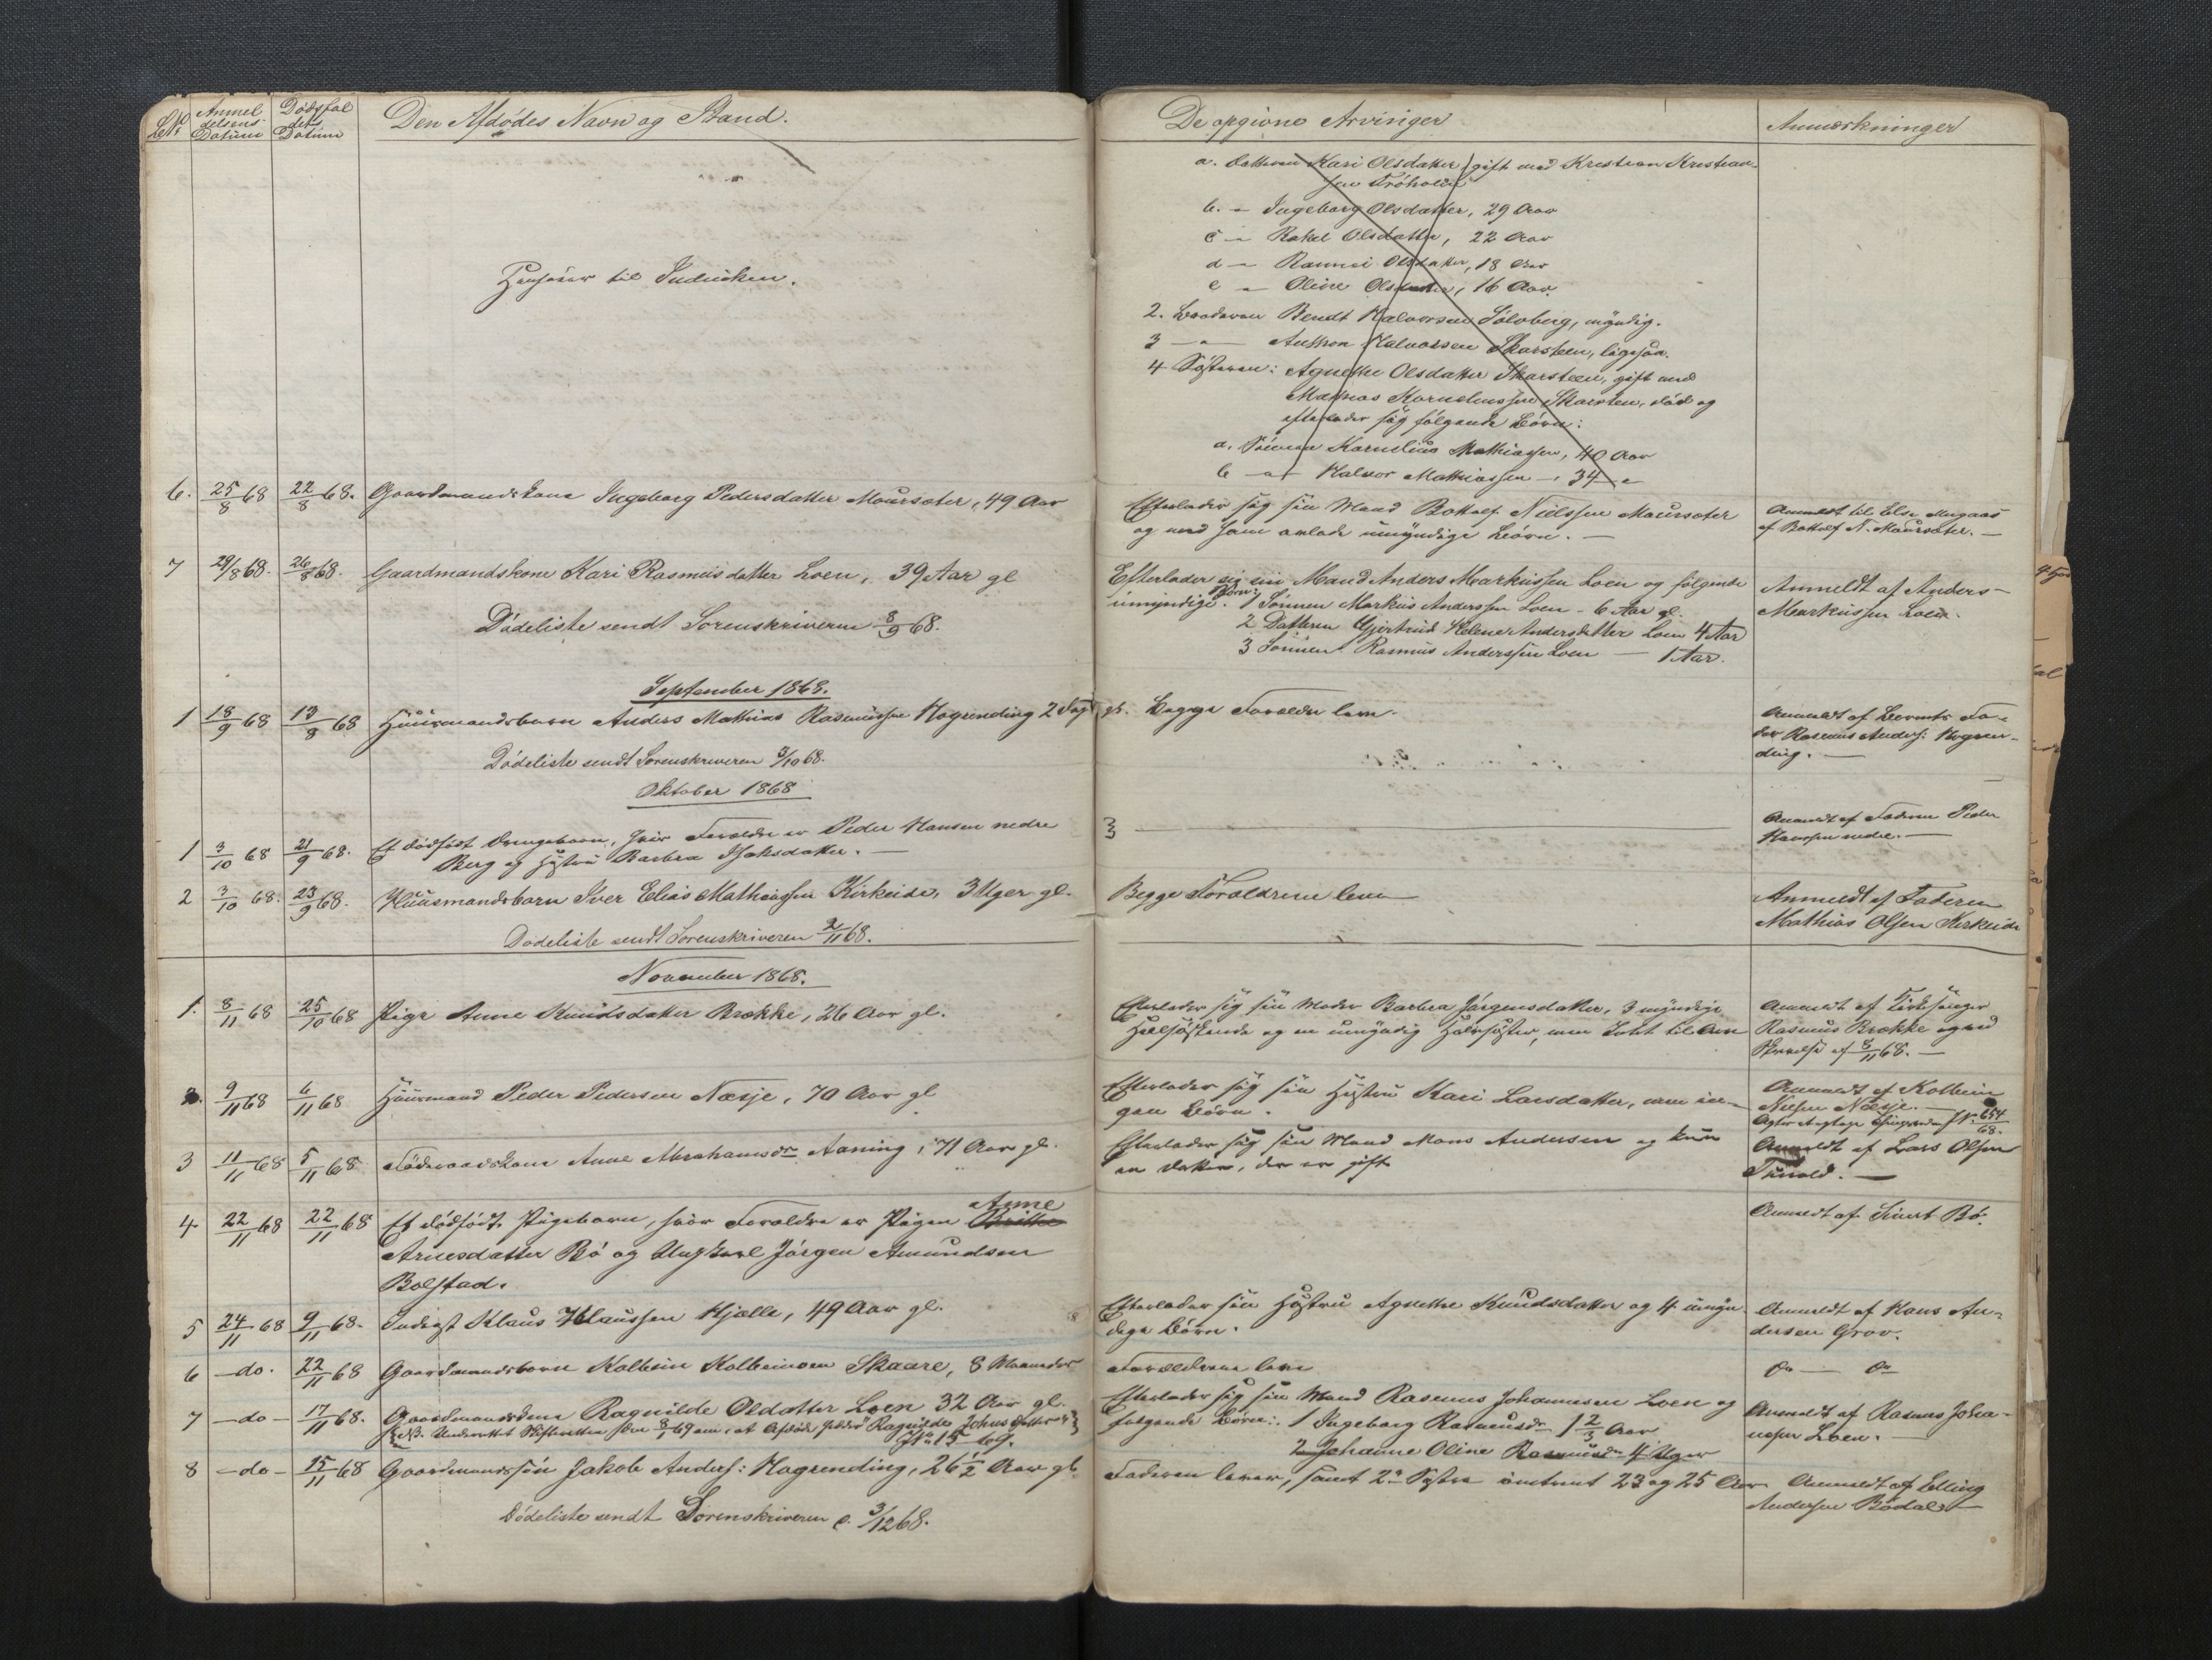 Lb.№ Anmeldelsens Datum Dødsfaldets Datum Den Afdødes Navn og Stand. De opgivne Arvinger Anmærkninger
a. Datteren Kari Olsdatter, gift med Kristian Kristian-
sen
b. - Ingeborg Olsdatter, 29 Aar
c - Rakel Olsdatter, 22 Aar
d - Rannei Olsdatter, 18 Aar
e - Oline Olsdatter, 16 Aar.
Henhører til
2. Broderen Bendt Halvorsen Solvberg, myndig.
3 - Anthon Halvorsen Skarsteen, ligesaa.
4 Søsteren: Agnethe Olsdatter Skarsteen, gift med
Mathias Korneliussen Skarsten, død og
efterlader sig følgende Børn:
a. Sønnen Kornelius Mathiassen, 40 Aar
b - Halvor Mathiassen - 34 -
6. 25/8 68 22/8 68. Gaardmandskone Ingeborg Pedersdatter Maursæter, 49 Aar
Efterlader sig sin Mand Bottolf Nielssen Maursæter
og med ham avlede umyndige Børn. —
Anmeldt til Else Mugaas
af Bottolf N. Maursæter. —
7 29/8 68. 26/8 68. Gaardmandskone Kari Rasmusdatter Loen, 39 Aar gl
Efterlader sig sin Mand Anders Markussen Loen og følgende
umyndige Børn: 1 Sønnen Markus Anderssen Loen - 6 Aar gl.
2 Datteren Gjertrud Helene Andersdatter Loen 4 Aar
3 Sønnen Rasmus Anderssen Loen — 1 Aar.
Anmeldt af Anders
Markussen Loen.
Dødeliste sendt Sorenskriveren 8/9 68.
September 1868.
1 18/9 68 13/8 68 Huusmandsbarn Anders Mathias Rasmussen Hogrending 2 Dage gl. Begge Forældre leve.
Anmeldt af Barnets Fa-
der Rasmus Anders: Hogren-
ding. —
Dødeliste sendt Sorenskriveren 3/10 68.
Oktober 1868
1 3/10 68 21/9 68. Et dødfødt Drengebarn, hvis Forældre er Peder Hansen nedre
Berg og Hustru Barbra Isaksdatter. —
Anmeldt af Faderen Peder
Hansen nedre. —
2 3/10 68. 23/9 68. Huusmandsbarn Iver Elias Mathiassen Kirkeide, 3 Uger gl.
Begge Forældrene leve
Anmeldt af Faderen
Mathias Olsen Kirkeide
Dødeliste sendt Sorenskriveren 2/11 68.
November 1868.
1. 8/11 68 25/10 68 Pige Anne Knudsdatter Brække, 26 Aar gl.
Efterlader sig sin Moder Barbra Jørgensdatter, 3 myndige
Helsøskende og en umyndig Halvsøster, men Intet til Arv
Anmeldt af Kirkesanger
Rasmus Brække ved
Skrivelse af 8/11 68. —
2. 9/11 68 6/11 68 Huusmand Peder Pedersen Næsje, 70 Aar gl
Efterlader sig sin Hustru Kari Larsdatter, men in-
gen Børn.
Anmeldt af Kolbein
Nielsen Næsje. —
3 11/11 68 5/11 68 Føderaadskone Anne Abrahamsdr Aaning, 71 Aar gl.
Efterlader sig sin Mand Mons Andersen og kun
en Datter, der er gift
Anmeldt af Lars Olsen
4 22/11 68 22/11 68 Et dødfødt Pigebarn, hvor Forældre er Pigen Brithe Anne
Arnesdatter Bø og Ungkarl Jørgen Amundsen
Bolstad.
Anmeldt af Sivert Bø.
5 24/11 68 9/11 68. Inderst Klaus Klaussen Hjelle, 49 Aar gl.
Efterlader sin Hustru Agnethe Knudsdatter og 4 umyn-
dige Børn.
Anmeldt af Hans An-
dersen Grov.
6 —do. 22/11 68 Gaardmandsbarn Kolbein Kolbeinsen Skaare, 8 Maaneder
Forældrene leve
do — do
7 —do— 17/11 68. Gaardmandskone Ragnilde Oldatter Loen 32 Aar gl.
NB. Underrettet Skifteretten den 8/1 69 om, at Afdøde hedder Ragnilde Johnsdatter
J№ 15 69.
Efterlader sig sin Mand Rasmus Johannesen Loen og
følgende Børn: 1 Ingeborg Rasmusdr 1 2/3 Aar
2 Johanne Oline Rasmusdr 4 Uger
Anmeldt af Rasmus Joha-
nesen Loen. —
8 —do— 15/11 68 Gaardmandssøn Jakob Anders: Hogrending, 26 1/2 Aar gl.
Faderen lever, samt 2 Søstre omtrent 23 og 25 Aar
Anmeldt af Elling
Andersen Bødal. —
Dødeliste sendt Sorenskriveren d. 3/12 68.